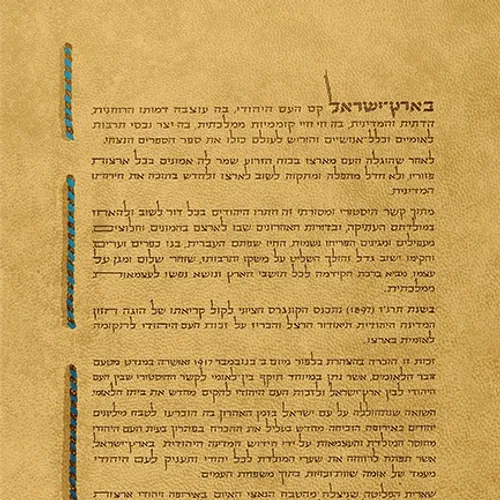 בארץ־ישראל קם העם היהודי, בה עוצבה דמותו הרוחנית,
הדתית והמדינית, בה חי חיי קוממיות ממלכתית, בה יצר נכסי תרבות
לאומיים וכלל־אנושיים והוריש לעולם כולו את ספר הספרים הנצחי.
לאחר שהוגלה העם מארצו בכוח הזרוע שמר לה אמונים בכל ארצות
פזוריו, ולא חדל מתפלה ומתקוה לשוב לארצו ולחדש בתוכה את חירותו
המדינית.
מתוך קשר היסטורי ומסורתי זה חתרו היהודים בכל דור לשוב ולהאחז
במולדתם העתיקה, ובדורות האחרונים שבו לארצם בהמונים, וחלוצים,
מעפילים ומגינים הפריחו נשמות, החיו שפתם העברית, בנו כפרים וערים,
והקימו ישוב גדל והולך השליט על משקו ותרבותו, שוחר שלום ומגן על
עצמו, מביא ברכת הקידמה לכל תושבי הארץ ונושא נפשו לעצמאות
ממלכתית.
בשנת תרנ״ז (1897) נתכנס הקונגרס הציוני לקול קריאתו של הוגה חזון
המדינה היהודית תיאודור הרצל והכריז על זכות העם היהודי לתקומה
לאומית בארצו.
זכות זו הוכרה בהצהרת בלפור מיום ב׳ בנובמבר 1917 ואושרה במנדט מטעם
חבר הלאומים, אשר נתן במיוחד תוקף בין־לאומי לקשר ההיסטורי שבין העם
היהודי לבין ארץ־ישראל ולזכות העם היהודי להקים מחדש את ביתו הלאומי.
השואה שנתחוללה על עם ישראל בזמן האחרון, בה הוכרעו לטבח מיליונים
יהודים באירופה, הוכיחה מחדש בעליל את ההכרח בפתרון בעית העם היהודי
מחוסר המולדת והעצמאות על־ידי חידוש המדינה היהודית בארץ־ישראל,
אשר תפתח לרווחה את שערי המולדת לכל יהודי ותעניק לעם היהודי
מעמד של אומה שוות־זכויות בתוך משפחת העמים.
שארית הפליטה שניצלה מהטבח הנאצי האיום באירופה ויהודי ארצות